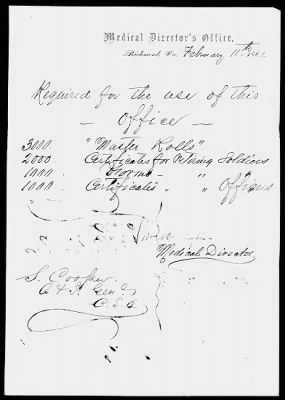 Medical Director's Office,
Richmond, Va. February 11th
Required for the use of this
— Office —
3000 "Muster Rolls"
2000 Certificates for Retiring Soldiers
1000 Forms — " "
1000 Certificates " " Officers
Medical Director
S. Cooper
A & I Genl
C.S.A